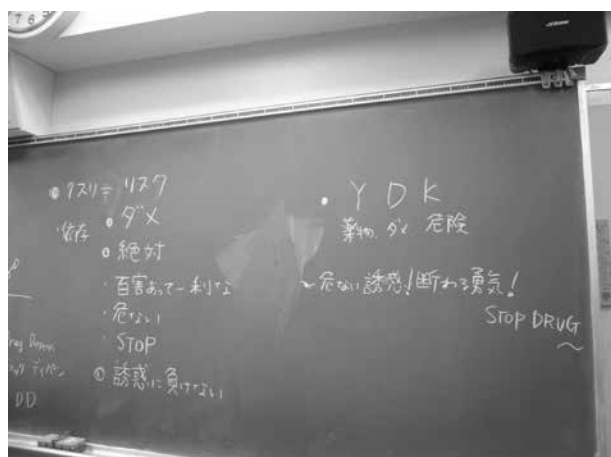 クスリ=リスク
ダメ
・依存
絶対
・百害あって一利な
・危ない
・STOP
誘惑に負けない
DD
・Y D K
薬物、ダメ 危険
〜危ない誘惑!断わる勇気!
STOP DRUG
〜